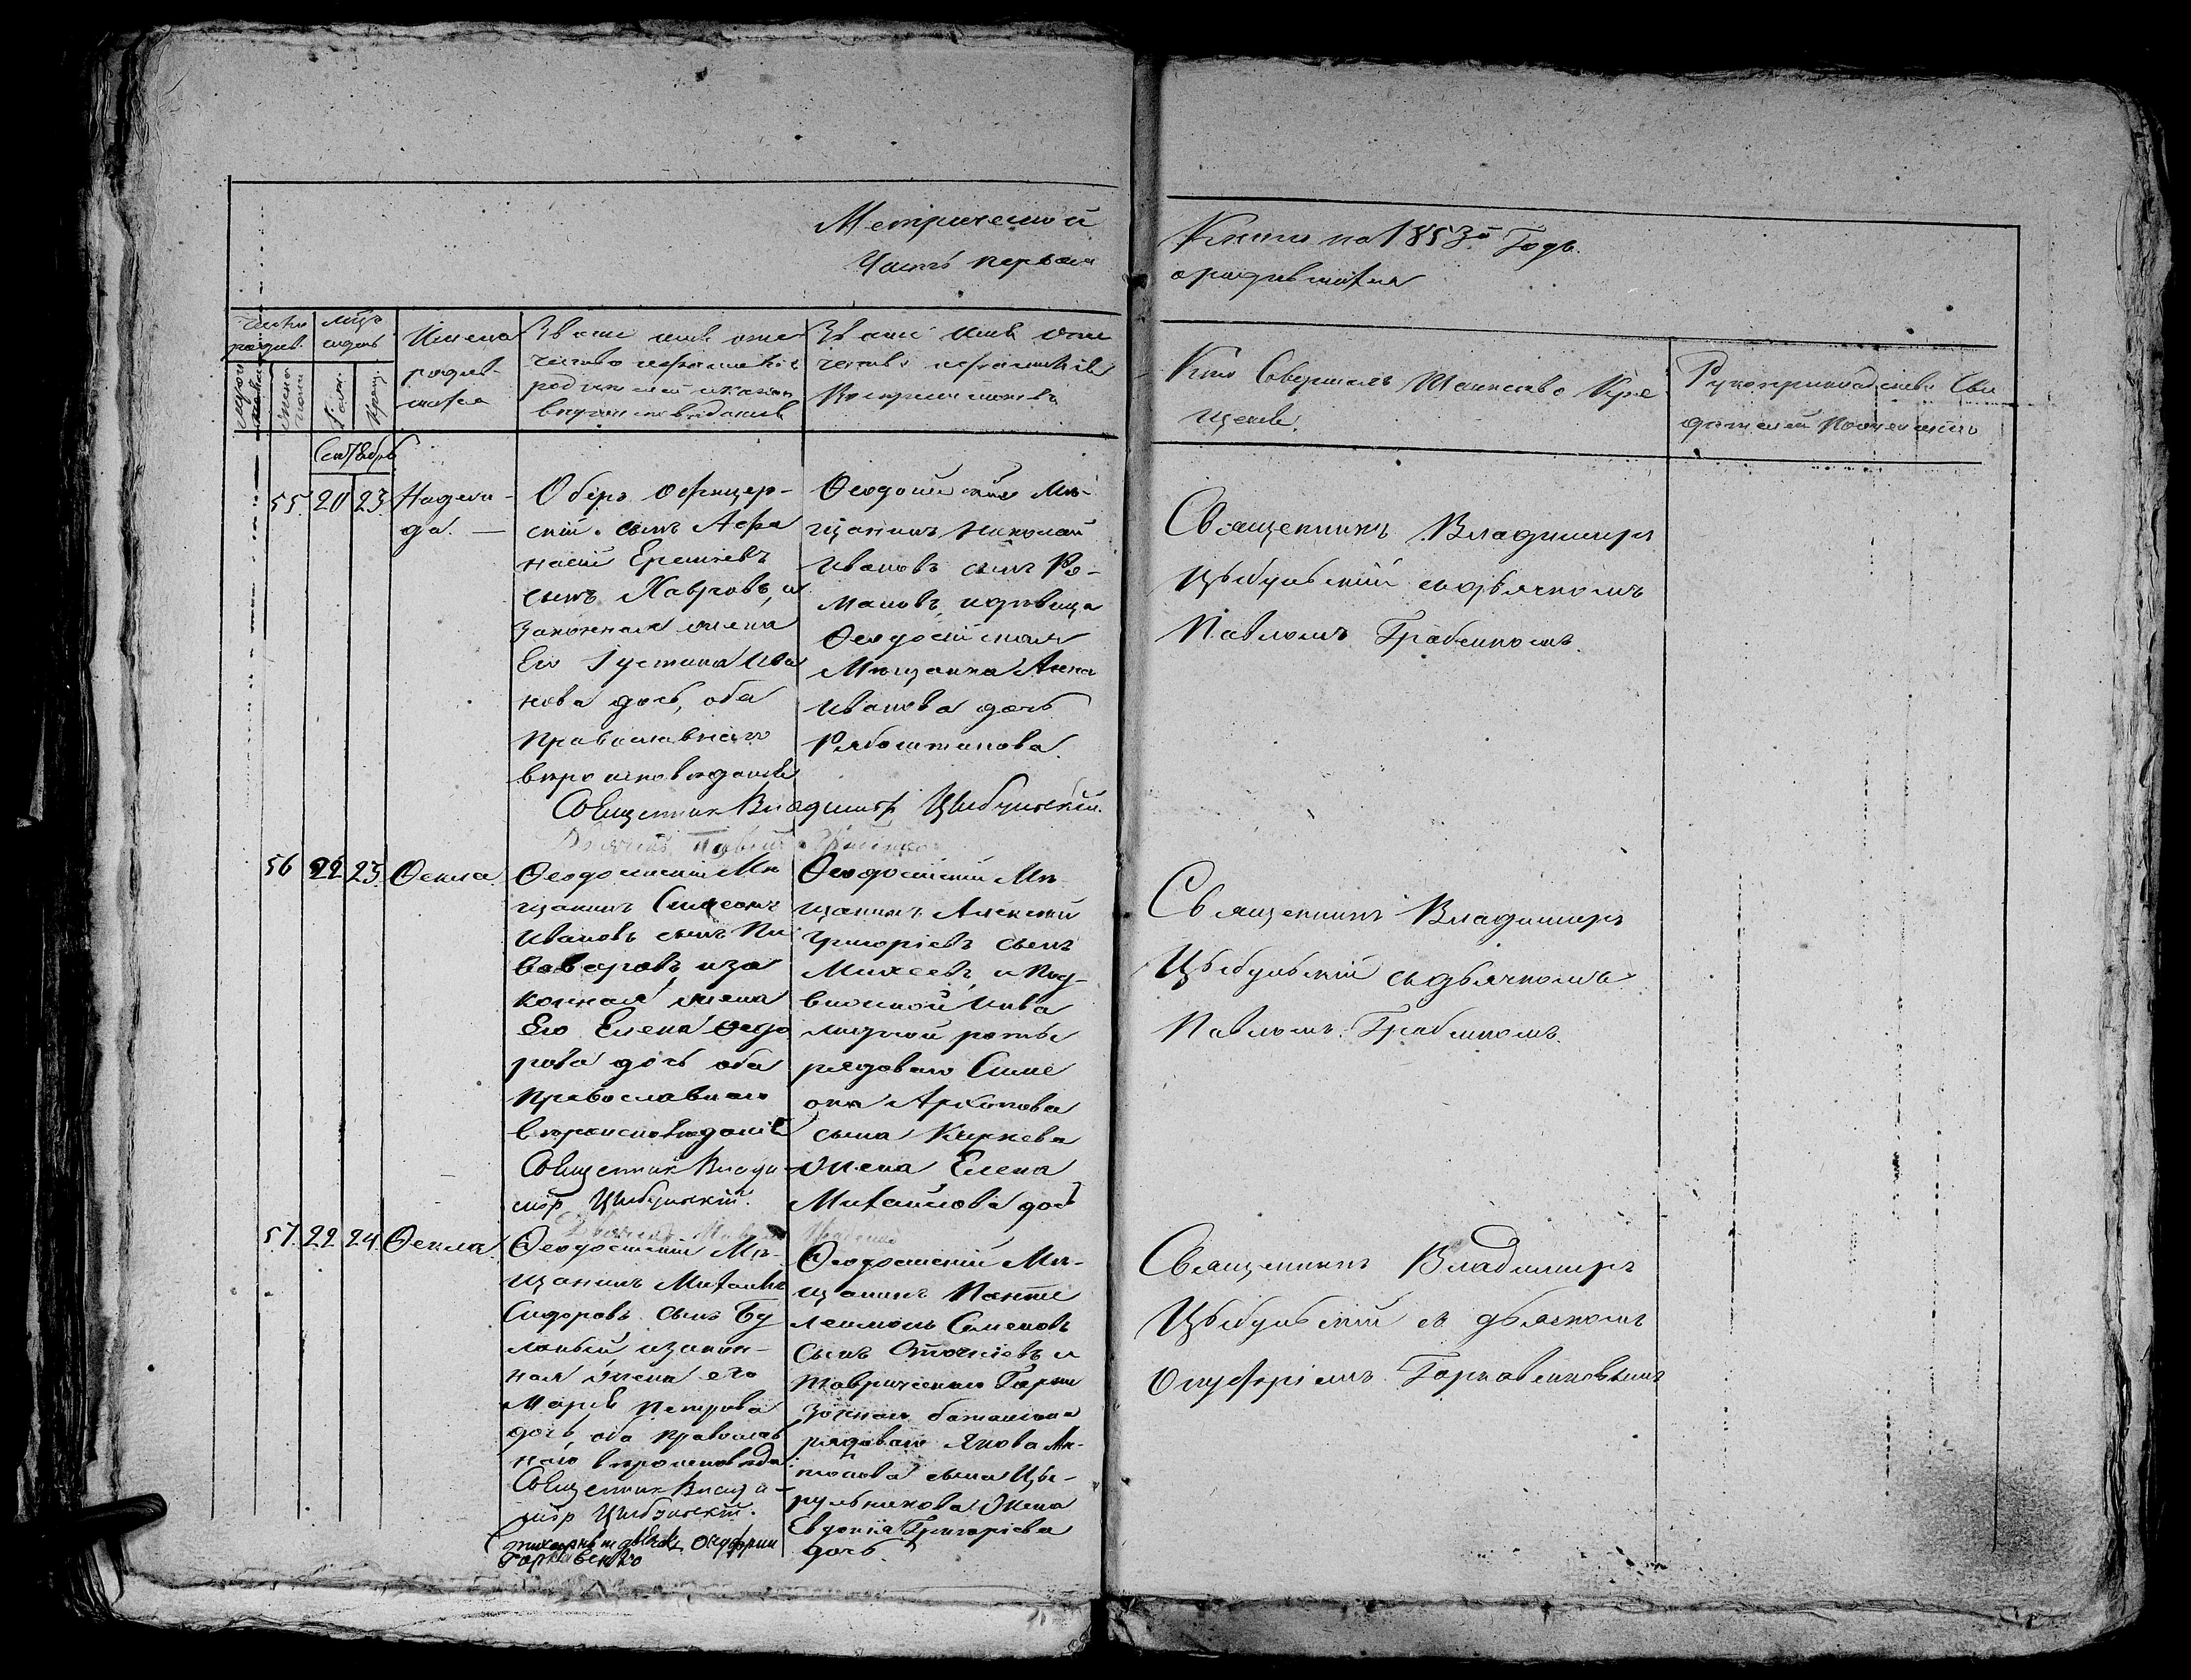 Метрической
Часть первая
Книги на 1853й Годъ.
о родившихся
Число родив.
мѣсяцъ и день
Имена родив-
шихся
Званіе имя отче
ство и фамилія
родителей и какого
вѣроисповѣданія
Званіе имя отче
ство и фамилія
Воспріемниковъ
Кто Совершалъ Таинство Кре
щенія.
Рукоприкладство Сви
дѣтелей по желанію
мужеска
женска
Рожд.
Крещ.
Сентября
55. 20 23. Надеж-
да. —
Оберъ офицер-
скій сынъ Афа
насій
сынъ Лавровъ, и
Законная жена
Его Іустина Ива
нова дочь, оба
Православнаго
вѣроисповѣданія
Священник Владимір Цыбульскій.
Феодосійскій Мѣ-
щанинъ Николай
Ивановъ сынъ Ро-
мановъ, и дѣвица
Феодосійская
Мѣщанка Анна
Иванова дочь
Священникъ Владимиръ
Цыбульскій съ дьячкомъ
Павломъ
56 22 23. Фекла.
Феодосійскій Мѣ
щанинъ Симеонъ
Ивановъ сынъ Пи
воваровъ, и за
конная жена
Его Елена Федо
рова дочь оба
Православнаго
вѣроисповѣданія
Священник Влади
мір Цыбульскій.
Феодосійскій Мѣ
щанинъ Алексѣй
Григоріевъ сынъ
Михеевъ, и Под
вижной Инва
лидной роты
рядоваго Симе
она Архипова
сына
жена Елена
Михайлова дочь
Священникъ Владимиръ
Цыбульскій съ дьячкомъ
Павломъ
57. 22 24. Фекла.
Феодосійскій Мѣ-
щанинъ Михаилъ
Сидоровъ сынъ Бу
лавый и закон-
ная жена его
Марія Петрова
дочь, оба Православ
наго вѣроисповѣда
Священник Влади-
мір Цыбульскій.
Онуфрій
Горковенко
Феодосійскій Мѣ-
щанинъ Панте
леимонъ Семеновъ
Сынъ и
Таврическаго Гарни
зоннаго баталіона
рядоваго Якова Ан-
тонова сына Цы-
рульникова жена
Евдокія Григоріева
дочь.
Священникъ Владимиръ
Цыбульскій съ дьячкомъ
Онуфріемъ Горковенковымъ